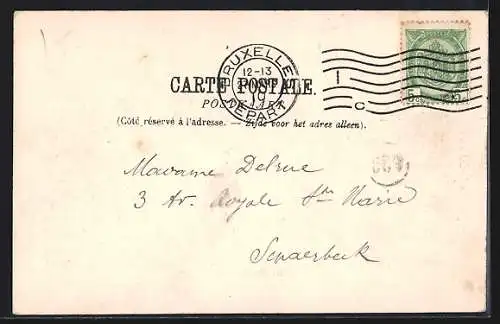 BRUXELLES
12-13
19
DEPART
CARTE POSTALE.
POSTKAART
(Côté réservé à l'adresse. — Zijde voor het adres alleen).
Madame Delrue
3 Av. Royale Ste Marie
Schaerbeek
5 5